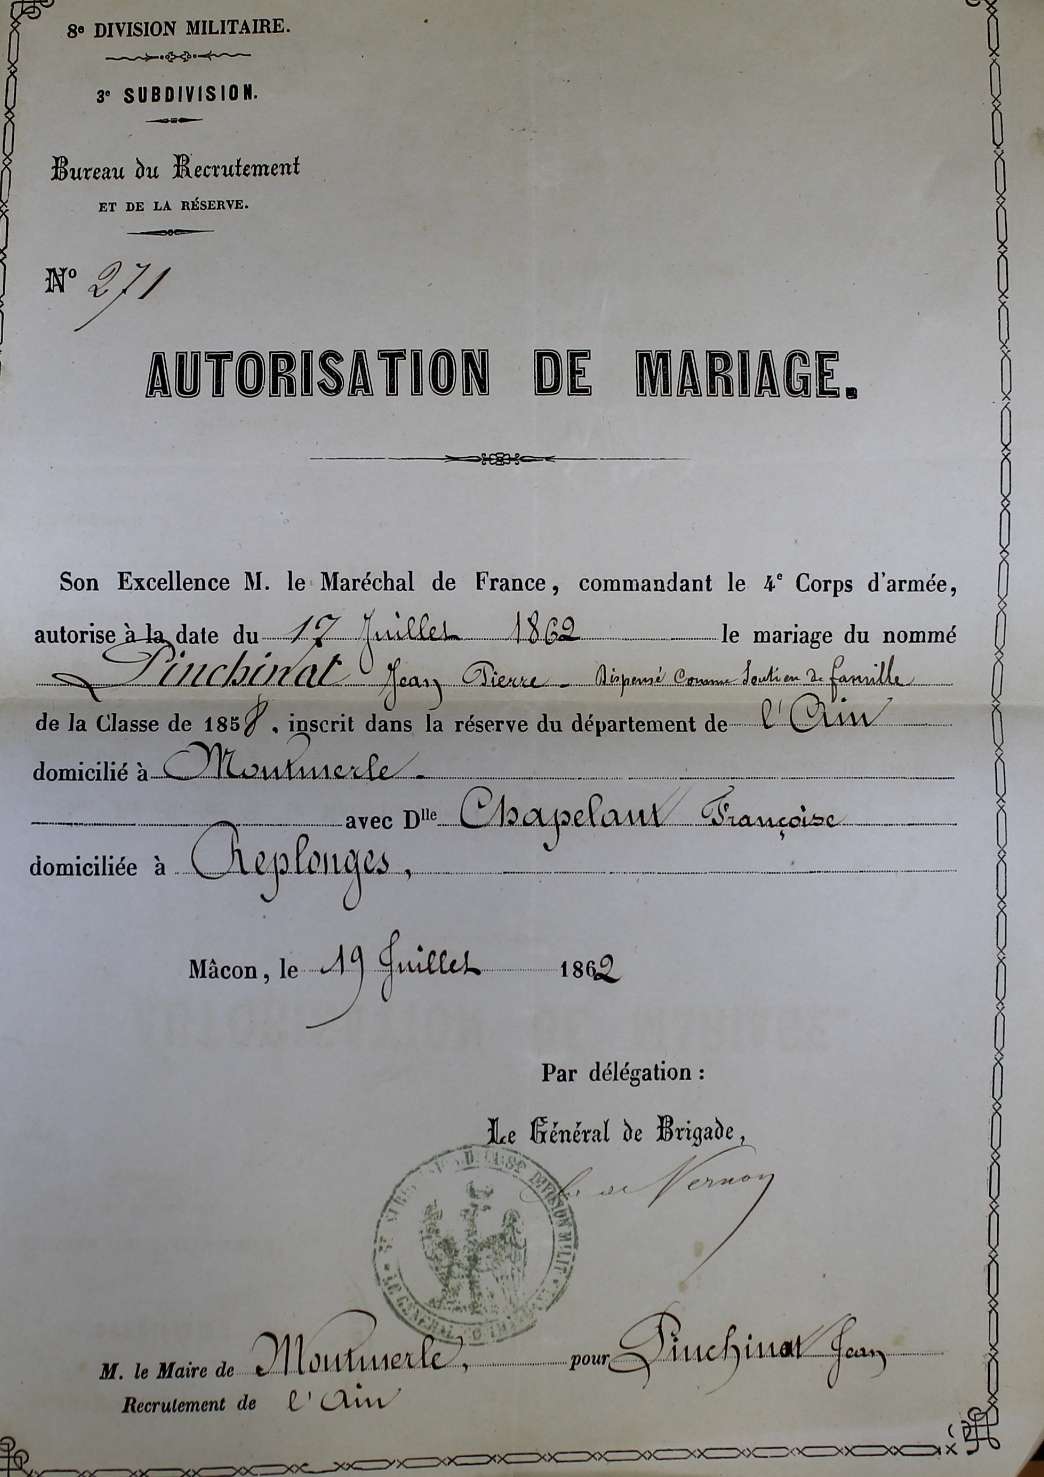 8e DIVISION MILITAIRE.
3e SUBDIVISION.
Bureau du Recrutement
ET DE LA RÉSERVE.
No 271
AUTORISATION DE MARIAGE.
Son Excellence M. le Maréchal de France, commandant le 4e Corps d'armée,
autorise à la date du 17 Juillet 1862 le mariage du nommé
Pinchinat Jean Pierre - Dispensé comme soutien de famille
de la Classe de 1858, inscrit dans la réserve du département de l'Ain
domicilié à Montmerle
avec Dlle Chapelant Françoise
domiciliée à Replonges,
Mâcon, le 19 Juillet 1862
Par délégation :
Le Général de Brigade,
de Vernon
DIVISION MILIT
LE GÉNÉRAL
M. le Maire de Montmerle, pour Pinchinat Jean
Recrutement de l'Ain